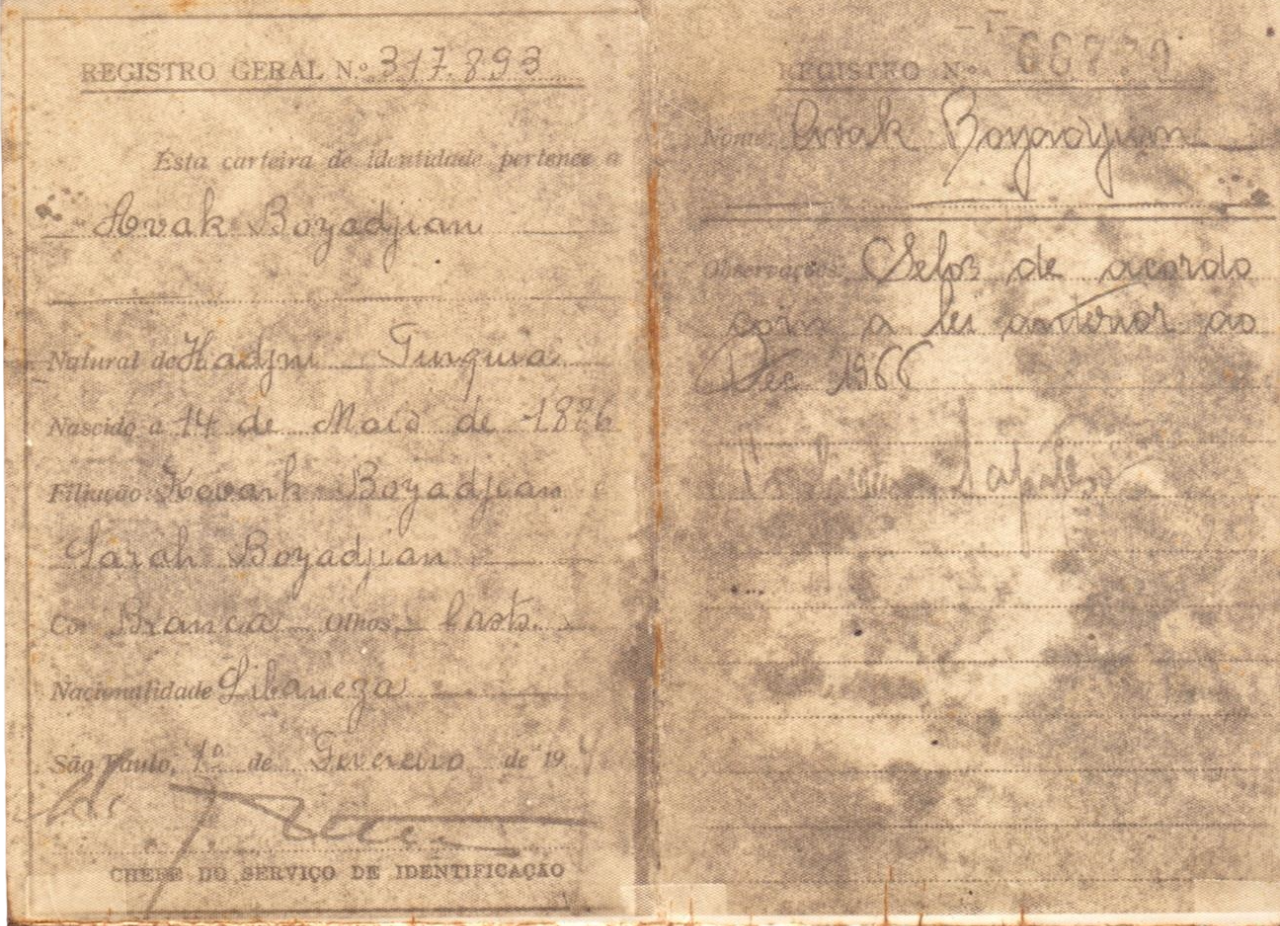 REGISTRO GERAL N.º 317.893
Esta carteira de identidade pertence a
Avak Boyadjian
Natural de Hadjin Turquia
Nascido a 14 de Maio de 1886
Filiação: Kevark Boyadjian
Sarah Boyadjian
Cor Branca Olhos Casts.
Nacionalidade Libaneza
São Paulo, 1º de Fevereiro de 194
CHEFE DO SERVIÇO DE IDENTIFICAÇÃO
- 1 -
REGISTRO Nº
Nome: Avak Boyadjian
Observações: Selos de acordo
com a lei anterior ao
Dec 1966